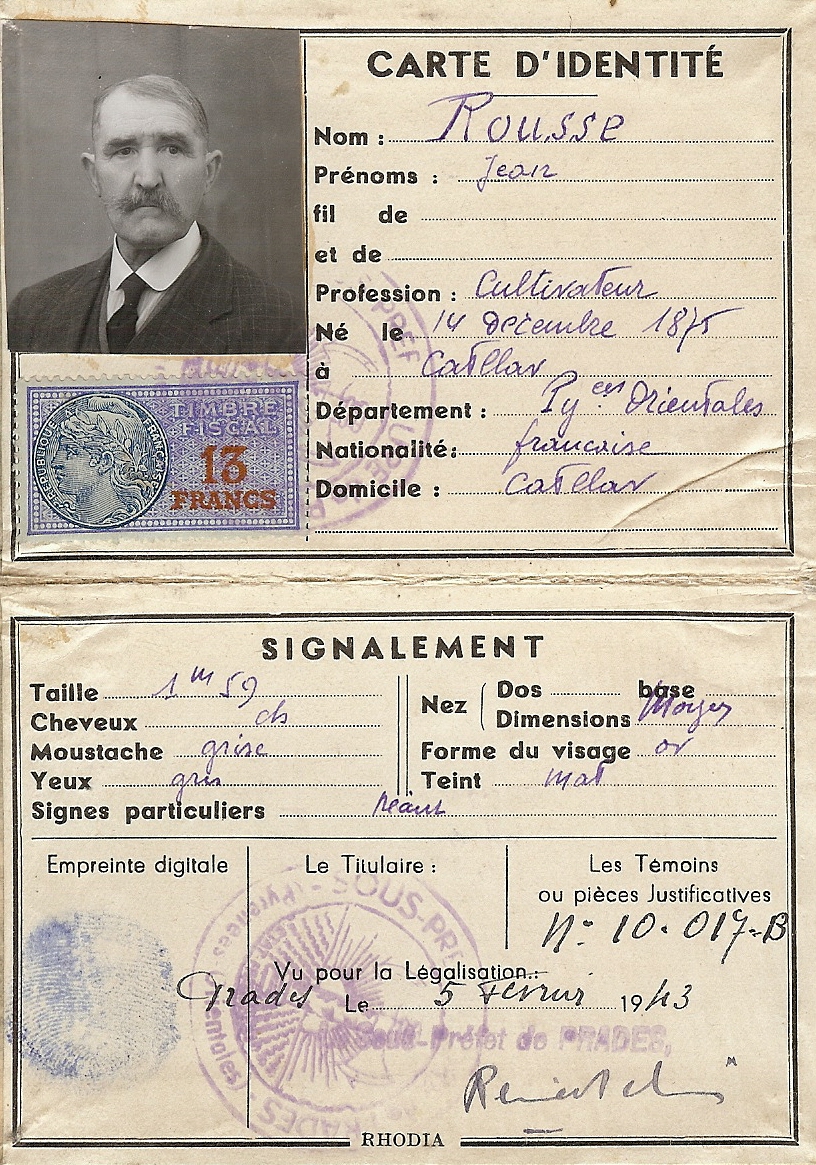 CARTE D'IDENTITÉ
Nom : Rousse
Prénoms : Jean
fil de
et de
Profession : Cultivateur
Né le 14 Décembre 1875
à Catllar
Département : Py ees Orientales
Nationalité: francaise
Domicile : Catllar
RÉPUBLIQUE FRANÇAISE
TIMBRE
FISCAL
13
FRANCS
SIGNALEMENT
Taille 1m59
Cheveux ch
Moustache grise
Yeux gris
Nez Dos base
Dimensions Moyen
Forme du visage ov
Teint mat
Signes particuliers néant
Empreinte digitale
Le Titulaire :
Les Témoins
ou pièces Justificatives
N° 10.017-B
SOUS-PRÉ
(Pyrénées Orientales)
PRADES
Vu pour la Légalisation.:
Prades Le 5 Février 1943
Sous-Préfet de PRADES,
RHODIA